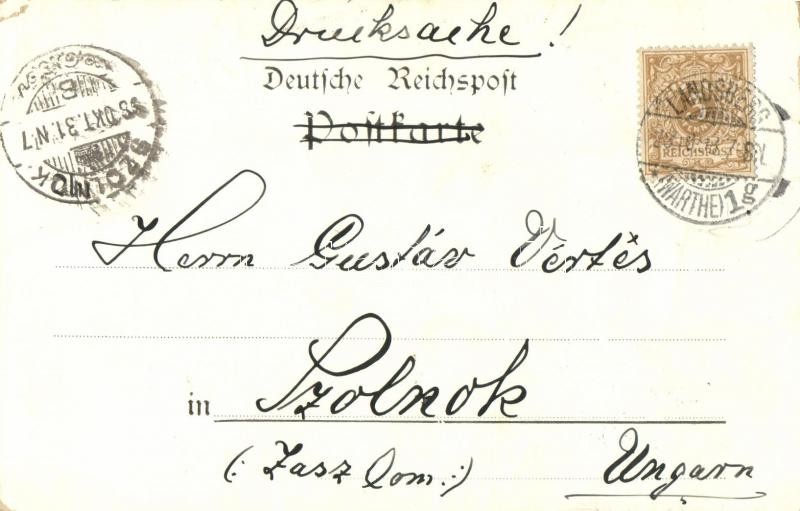 Drucksache!
Deutsche Reichspost
Postkarte
SZOLNOK
98 OKT. 31. N. 7
B
REICHSPOST
LANDSBERG
(WARTHE) 1g
Herrn Gustáv Vértés
in Szolnok
(: Jasz Com. :) Ungarn